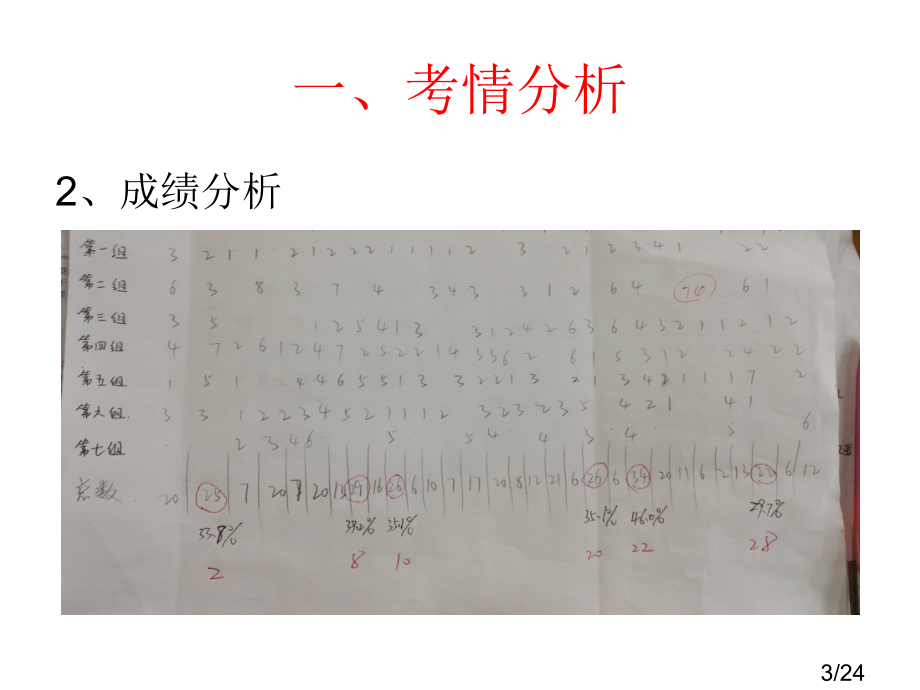 一、考情分析
2、成绩分析
第一组 3 2 1 1 2 1 2 2 2 1 1 1 1 2 3 2 1 2 3 4 1 2 2
第二组 6 3 8 3 7 4 3 4 3 3 1 2 6 4 74 6 1
第三组 3 5 1 2 5 4 1 3 3 1 2 4 2 6 3 6 4 3 2 1 1 2 1 2
第四组 4 7 2 6 1 2 4 7 2 5 2 2 1 4 3 3 6 2 6 1 5 3 1 2 2 4 2 2
第五组 1 5 1 4 4 6 5 5 1 3 3 2 2 1 3 2 1 3 4 2 1 1 1 7 2
第六组 3 3 1 2 2 3 4 5 2 1 1 1 2 3 2 3 2 3 5 4 2 1 4 1
第七组 2 3 4 6 5 5 4 4 3 4 5 6
总数 20 25 7 20 20 13 29 16 26 6 10 7 17 20 8 12 21 6 26 6 34 20 11 6 2 13 22 6 12
33.8% 39.2% 35.1% 35.1% 46.0% 29.7%
2 8 10 20 22 28
3/24